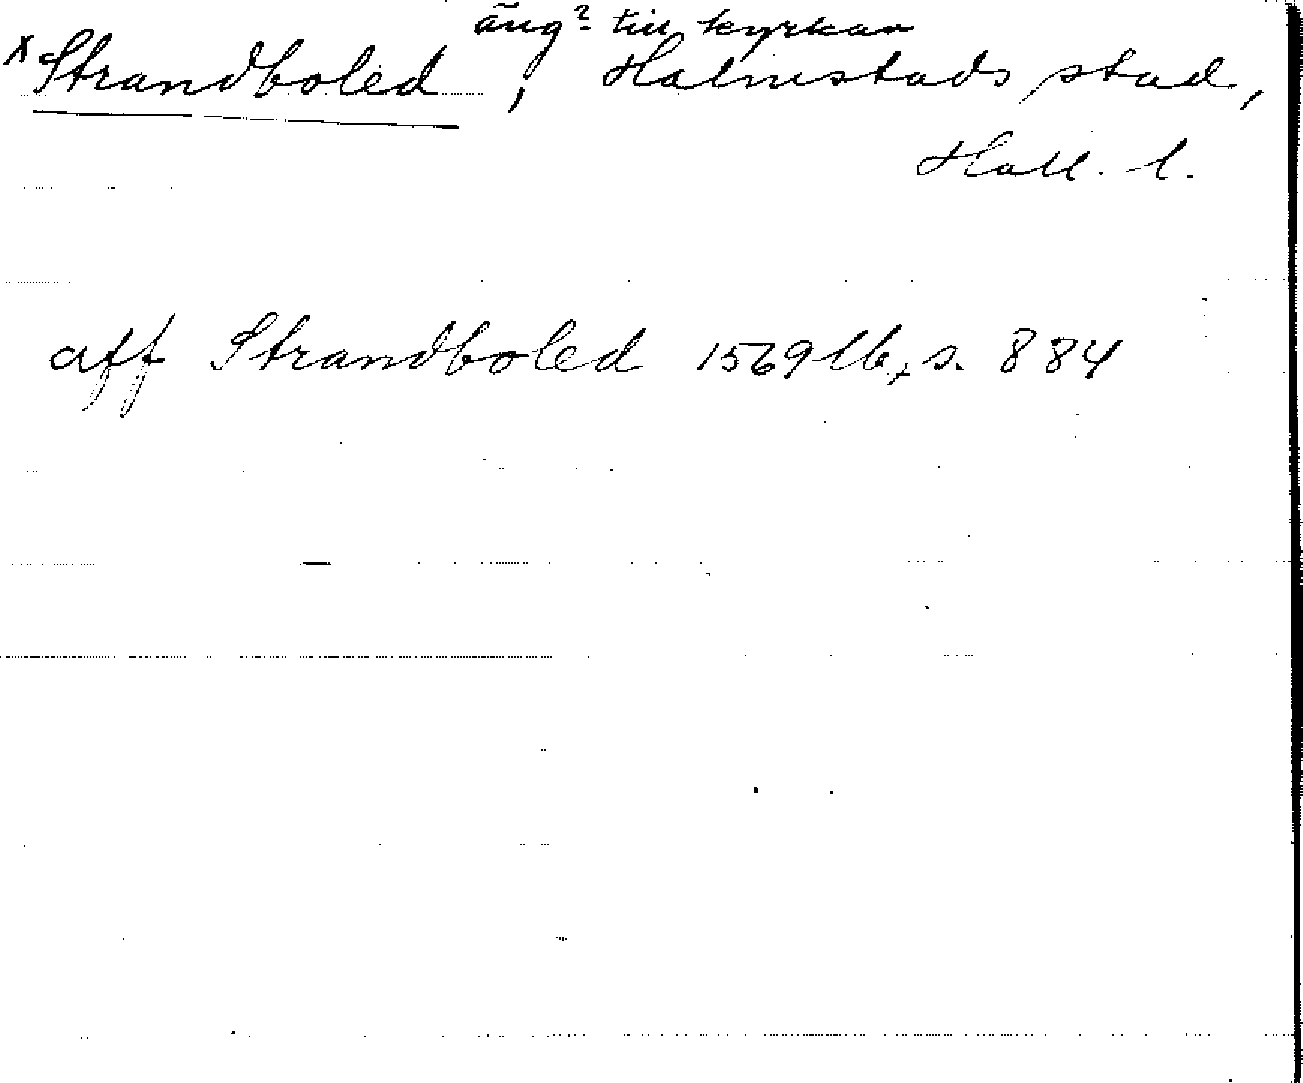 äng? till kyrkan
x Strandboled, Halmstads stad,
Hall. l.
aff Strandboled 1569 lb, s. 884